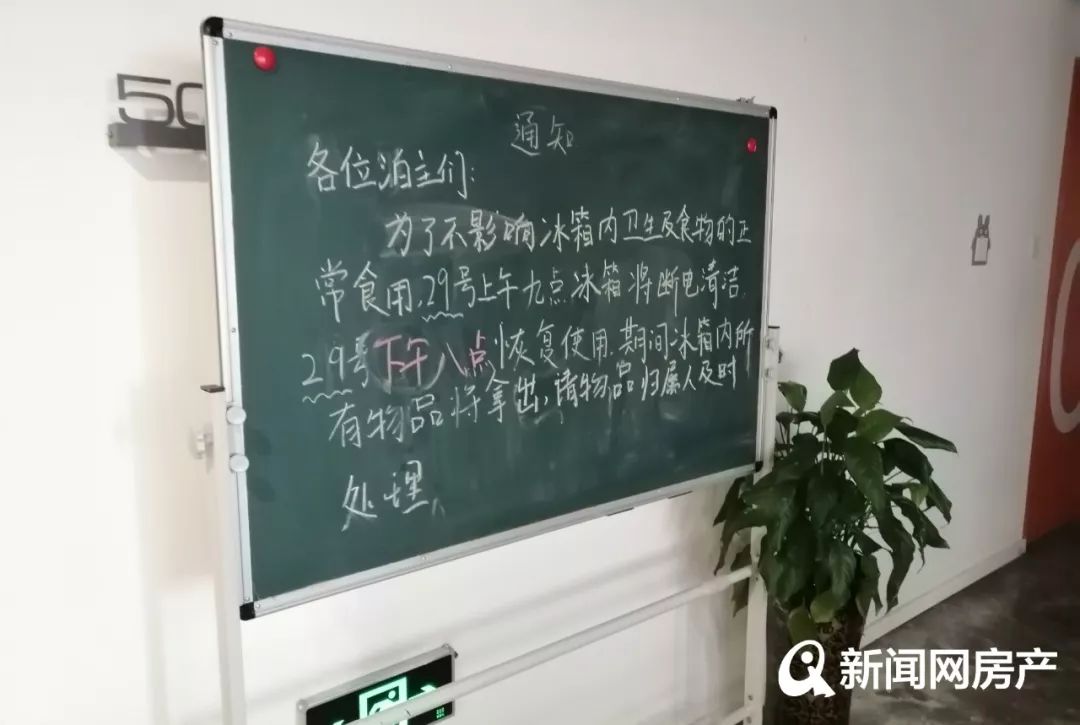 50
通知
各位泊主们:
为了不影响冰箱内卫生及食物的正
常食用,29号上午九点冰箱将断电清洁,
29号下午八点恢复使用,期间冰箱内所
有物品将拿出,请物品归属人及时
处理、
新闻网房产